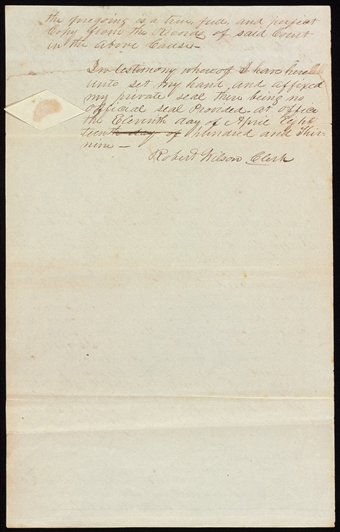 the foregoing is a true, full, and perfect
Copy from the Records of said Court
in the above Causes.
In testimony whereof I have here
unto set my hand and affixed
my private seal there being no
official seal Provided at Office
the Eleventh day of April Eight
teenth day of hundred and thir
nine —
Robert Wilson Clerk